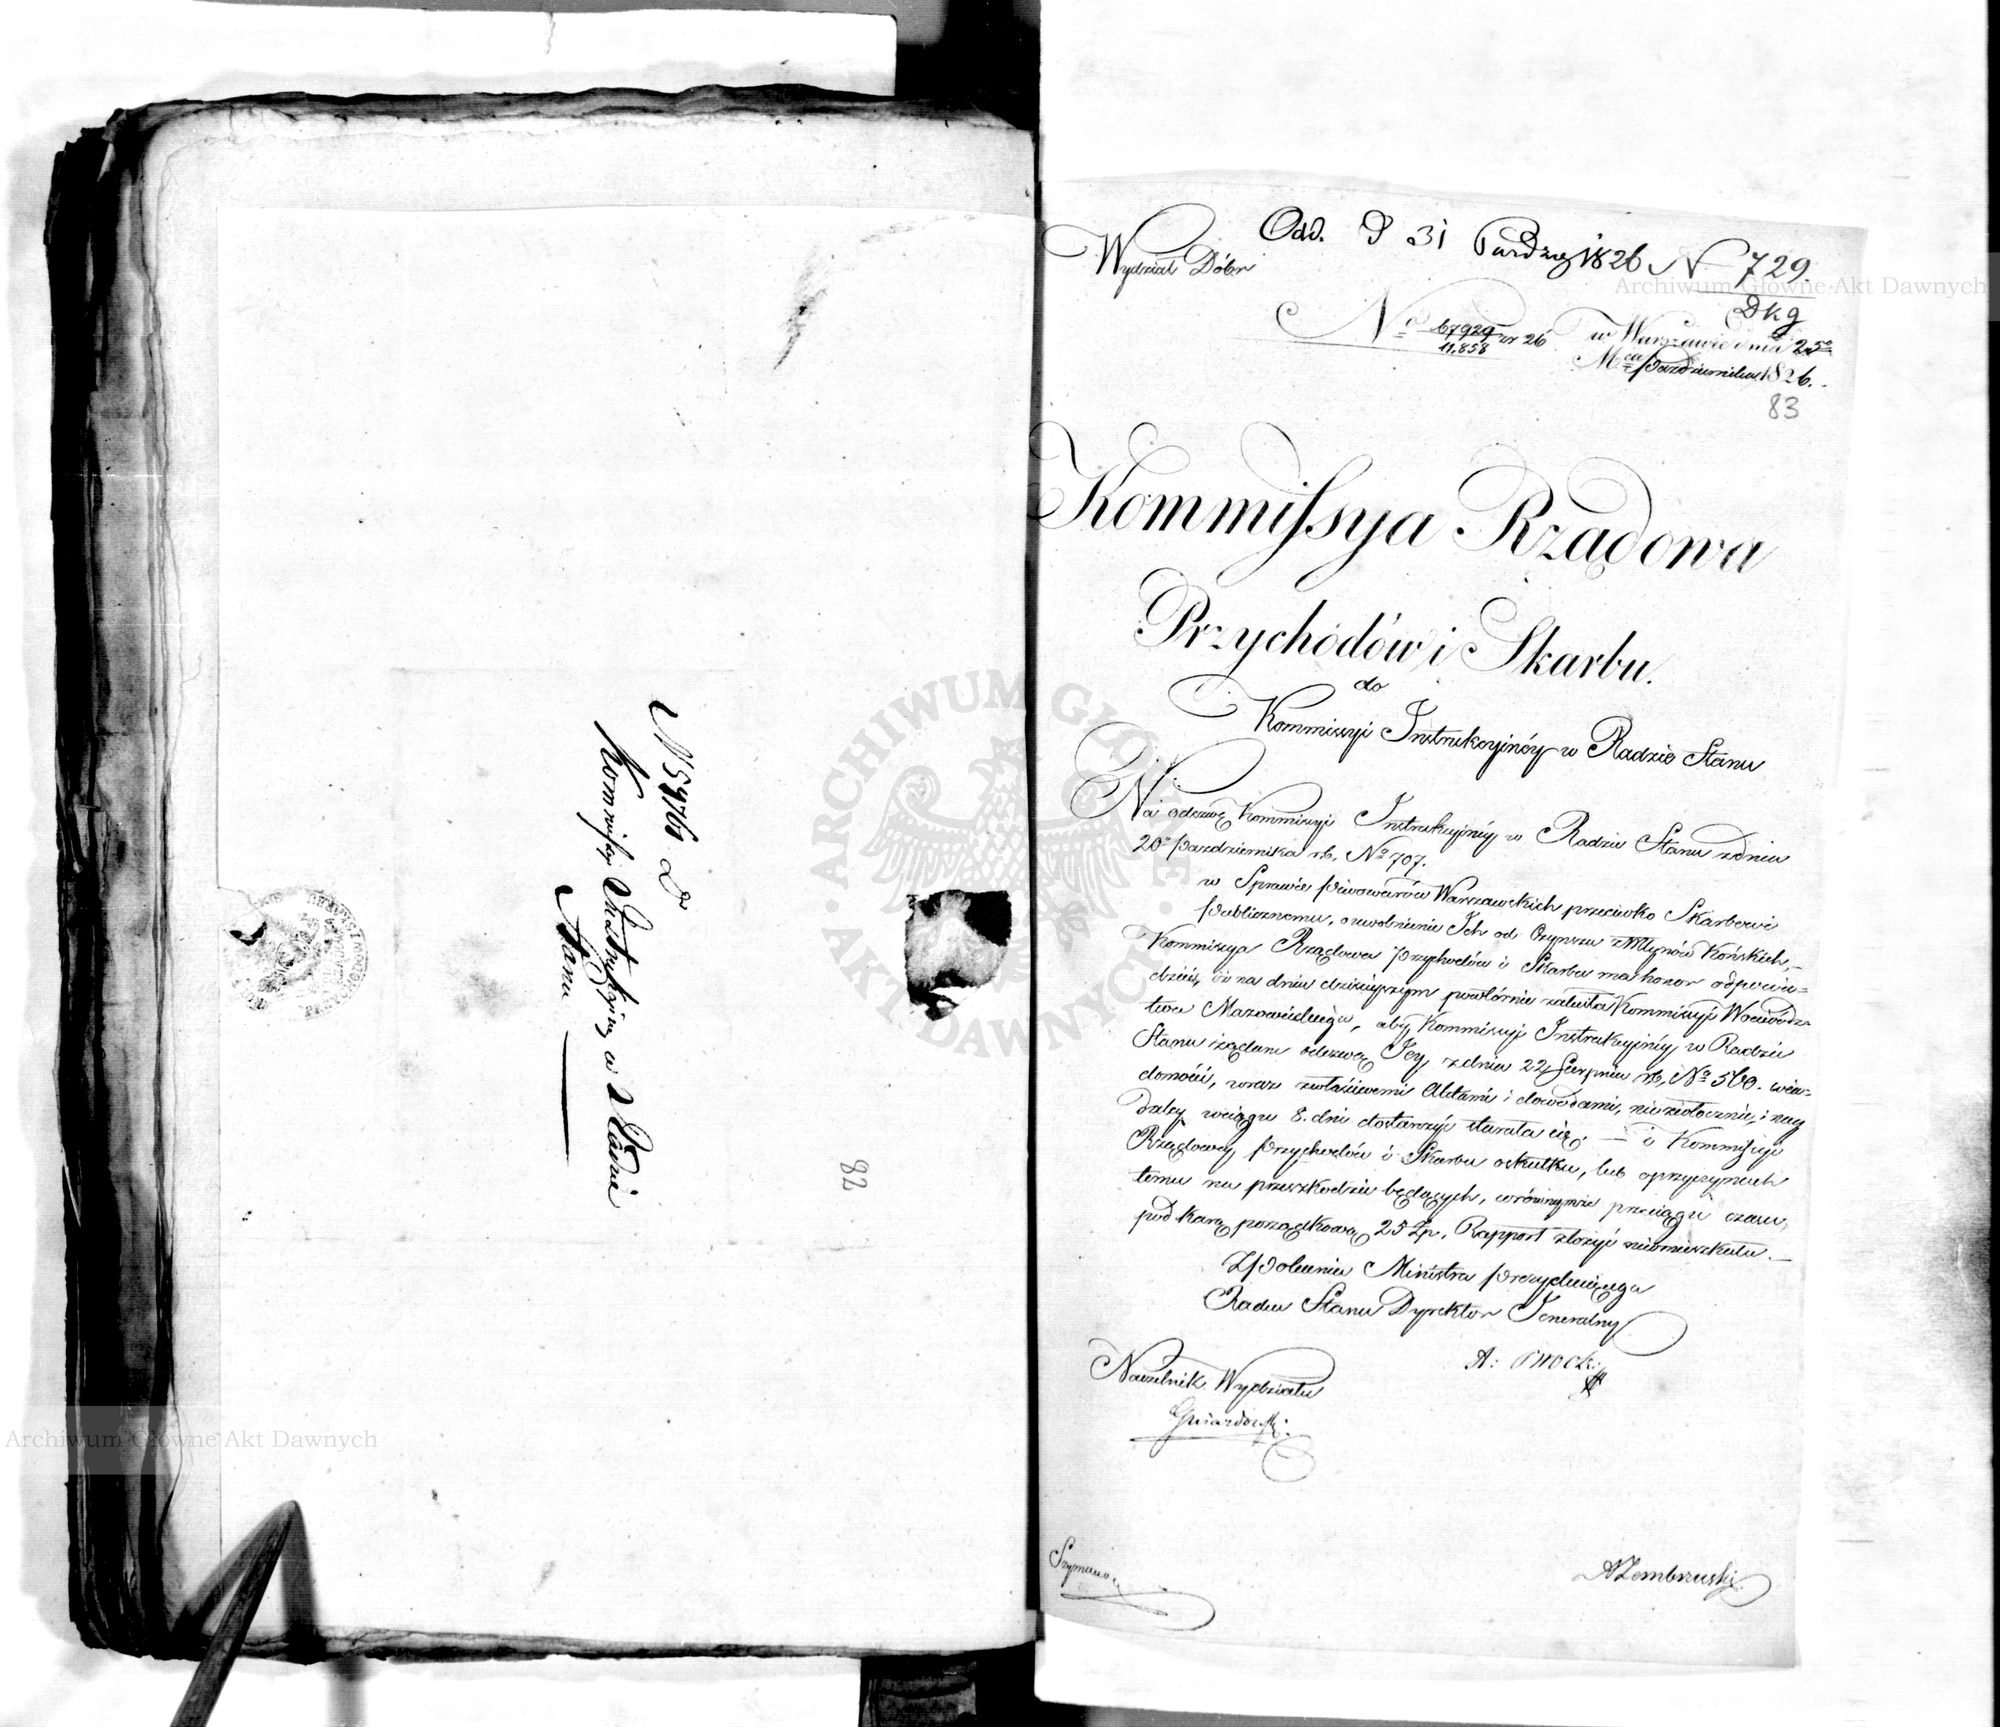 N 59761 D
Kommissyi Instrukcyjney w Radzie
Stanu
82
Odd. D 31 Paździe 1826 N 729
Dkg
Wydział Dóbr
No 67929/11.858 ex 26 w Warszawie dnia 25go
Mca Października 1826.
83
Kommissya Rządowa
Przychodów i Skarbu.
do
Kommissyi Instrukcyjnéy w Radzie Stanu
Na odezwę Kommissyi Instrukcyjnéy w Radzie Stanu z dnia
20o Października rb. No 707.
w Sprawie Piwowarów Warszawskich przeciwko Skarbowi
Publicznemu, o uwolnienie Ich od Czynszu z Młynów Końskich,
Kommissya Rządowa Przychodów i Skarbu ma honor odpowie=
dzieć, iż na dniu dzisiejszym powtórnie zaleciła Kommissyi Wojewódz=
twa Mazowieckiego, aby Kommissyi Instrukcyjnéy w Radzie
Stanu żądane odezwą Jey z dnia 22 Sierpnia rb. No 560. wia=
domości, wraz z właściwemi Aktami i dowodami, niezwłocznie, i nay
daley w ciągu 8. dni dostarczyć starała się. — i Kommissyi
Rządowey Przychodów i Skarbu o skutku, lub o przyczynach
temu na przeszkodzie będących, w równymże przeciągu czasu,
pod karą porządkową 25 Zp. Rapport złożyć nieomieszkała. —
Z Polecenia Ministra Prezydującego
Radca Stanu Dyrektor Jeneralny
A:
Naczelnik Wydziału
Archiwum Główne Akt Dawnych
Archiwum Główne Akt Dawnych
ARCHIWUM GŁÓWNE · AKT DAWNYCH ·